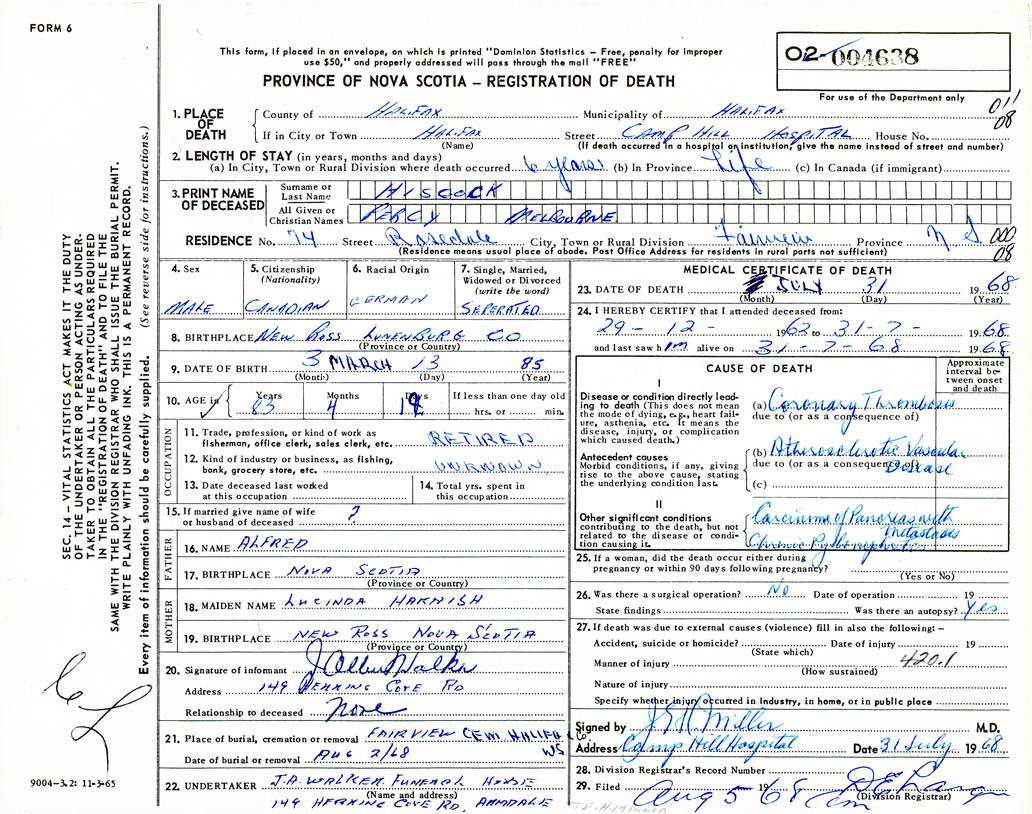 FORM 6
This form, if placed in an envelope, on which is printed "Dominion Statistics – Free, penalty for improper
use $50," and properly addressed will pass through the mail "FREE"
PROVINCE OF NOVA SCOTIA – REGISTRATION OF DEATH
02-004638
For use of the Department only
011
08
1. PLACE OF DEATH
County of HALIFAX Municipality of HALIFAX
If in City or Town HALIFAX Street CAMP HILL HOSPITAL House No.
(Name) (If death occurred in a hospital or institution, give the name instead of street and number)
2. LENGTH OF STAY (in years, months and days)
(a) In City, Town or Rural Division where death occurred 6 years (b) In Province Life (c) In Canada (if immigrant)
3. PRINT NAME OF DECEASED
Surname or Last Name HISCOCK
All Given or Christian Names PERCY MELBOURNE
RESIDENCE No. 74 Street Rosedale City, Town or Rural Division Fairview Province N.S. 000
08
(Residence means usual place of abode. Post Office Address for residents in rural parts not sufficient)
4. Sex MALE
5. Citizenship (Nationality) CANADIAN
6. Racial Origin GERMAN
7. Single, Married, Widowed or Divorced (write the word) SEPERATED
8. BIRTHPLACE NEW ROSS LUNENBURG CO
(Province or Country)
9. DATE OF BIRTH 3 MARCH 13 85
(Month) (Day) (Year)
10. AGE in Years 83 Months 4 Days 18 If less than one day old hrs. or min.
OCCUPATION
11. Trade, profession, or kind of work as fisherman, office clerk, sales clerk, etc. RETIRED
12. Kind of industry or business, as fishing, bank, grocery store, etc. UNKNOWN
13. Date deceased last worked at this occupation
14. Total yrs. spent in this occupation
15. If married give name of wife or husband of deceased ?
FATHER
16. NAME ALFRED
17. BIRTHPLACE NOVA SCOTIA
(Province or Country)
MOTHER
18. MAIDEN NAME LUCINDA HARNISH
19. BIRTHPLACE NEW ROSS NOVA SCOTIA
(Province or Country)
20. Signature of informant J Albert Walker
Address 149 HERRING COVE RD
Relationship to deceased None
21. Place of burial, cremation or removal FAIRVIEW CEM HALIFAX Co.
NS
Date of burial or removal AUG 2/68
22. UNDERTAKER J.A. WALKER FUNERAL HOUSE
(Name and address)
149 HERRING COVE RD, ARMDALE
MEDICAL CERTIFICATE OF DEATH
23. DATE OF DEATH JULY 31 1968
(Month) (Day) (Year)
24. I HEREBY CERTIFY that I attended deceased from:
29-12-1962 to 31-7-1968
and last saw him alive on 31-7-68 1968
CAUSE OF DEATH
Approximate interval between onset and death
I
Disease or condition directly leading to death (This does not mean the mode of dying, e.g., heart failure, asthenia, etc. It means the disease, injury, or complication which caused death.)
(a) Coronary Thrombosis
due to (or as a consequence of)
Antecedent causes
Morbid conditions, if any, giving rise to the above cause, stating the underlying condition last.
(b) Atherosclerotic Vascular Disease
due to (or as a consequence of)
(c)
II
Other significant conditions contributing to the death, but not related to the disease or condition causing it.
Carcinoma of Pancreas with Metastasis
Chronic Pyelonephritis
25. If a woman, did the death occur either during
pregnancy or within 90 days following pregnancy?
(Yes or No)
26. Was there a surgical operation? No Date of operation 19
State findings Was there an autopsy? Yes
27. If death was due to external causes (violence) fill in also the following: –
Accident, suicide or homicide? Date of injury 19
(State which)
Manner of injury 420.1
(How sustained)
Nature of injury
Specify whether injury occurred in Industry, in home, or in public place
Signed by Miller M.D.
Address Camp Hill Hospital Date 31 July 1968
28. Division Registrar's Record Number
29. Filed Aug 5 1968
(Division Registrar)
SEC. 14 – VITAL STATISTICS ACT MAKES IT THE DUTY
OF THE UNDERTAKER OR PERSON ACTING AS UNDER-
TAKER TO OBTAIN ALL THE PARTICULARS REQUIRED
IN THE "REGISTRATION OF DEATH" AND TO FILE THE
SAME WITH THE DIVISION REGISTRAR WHO SHALL ISSUE THE BURIAL PERMIT.
WRITE PLAINLY WITH UNFADING INK. THIS IS A PERMANENT RECORD.
Every item of information should be carefully supplied. (See reverse side for instructions.)
9004–3.2: 11-3-65